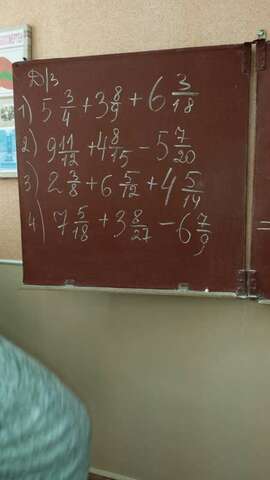 Д/З
1) 5 3/4 + 3 8/9 + 6 3/18
2) 9 11/12 + 4 8/15 - 5 7/20
3) 2 3/8 + 6 5/12 + 4 5/14
4) 7 5/18 + 3 8/27 - 6 7/9